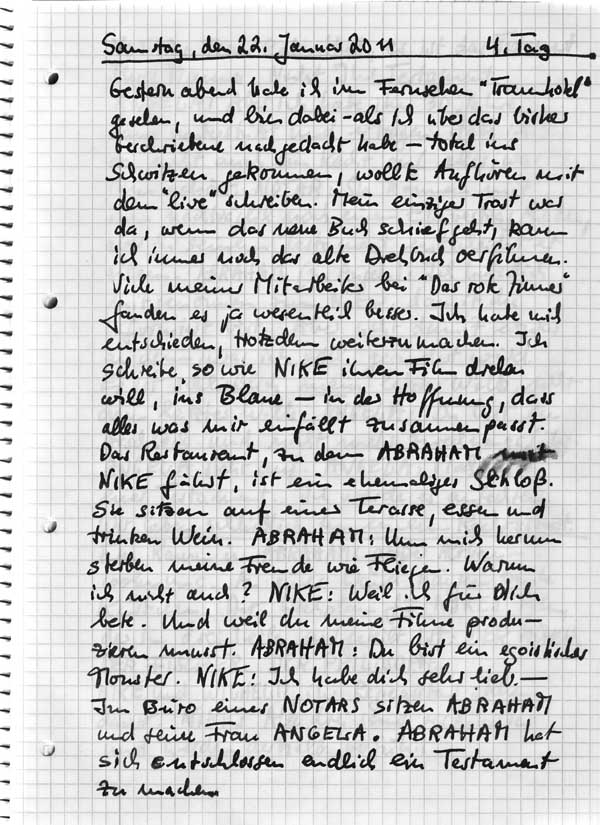 Samstag, den 22. Januar 2011 4. Tag
Gestern abend habe ich im Fernsehen "Traumhotel"
gesehen, und bin dabei - als ich über das bisher
Geschriebene nachgedacht habe - total ins
Schwitzen gekommen, wollte Aufhören mit
dem "live" schreiben. Mein einziger Trost war
da, wenn das neue Buch schiefgeht, kann
ich immer noch das alte Drehbuch verfilmen.
Viele meiner Mitarbeiter bei "Das rote Zimmer"
fanden es ja wesentlich besser. Ich habe mich
entschieden, trotzdem weiterzumachen. Ich
schreibe, so wie NIKE ihren Film drehen
will, ins Blaue - in der Hoffnung, dass
alles was mir einfällt zusammenpasst.
Das Restaurant, zu dem ABRAHAM mit
NIKE fährt, ist ein ehemaliges Schloß.
Sie sitzen auf einer Terasse, essen und
trinken Wein. ABRAHAM: Um mich herum
sterben meine Freunde wie Fliegen. Warum
ich nicht auch? NIKE: Weil ich für Dich
bete. Und weil du meine Filme produ-
zieren musst. ABRAHAM: Du bist ein egoistisches
Monster. NIKE: Ich habe dich sehr lieb.-
Im Büro eines NOTARS sitzen ABRAHAM
und seine Frau ANGELA. ABRAHAM hat
sich entschlossen endlich ein Testament
zu machen